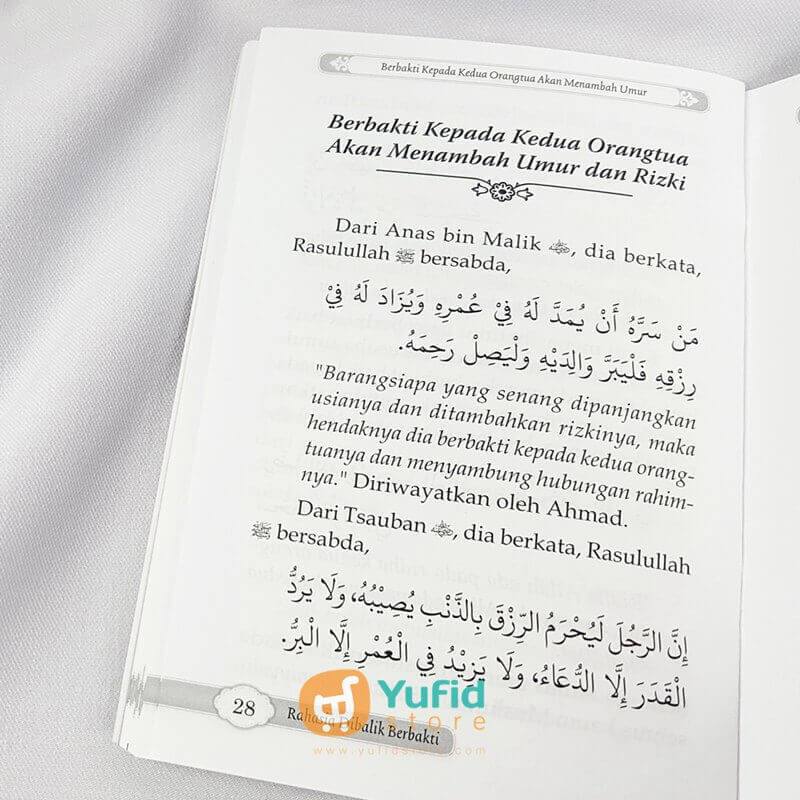 Berbakti Kepada Kedua Orangtua Akan Menambah Umur
Berbakti Kepada Kedua Orangtua
Akan Menambah Umur dan Rizki
Dari Anas bin Malik, dia berkata,
Rasulullah ﷺ bersabda,
مَنْ سَرَّهُ أَنْ يُمَدَّ لَهُ فِيْ عُمْرِهِ وَيُزَادَ لَهُ فِيْ
رِزْقِهِ فَلْيَبَرَّ وَالِدَيْهِ وَلْيَصِلْ رَحِمَهُ.
"Barangsiapa yang senang dipanjangkan
usianya dan ditambahkan rizkinya, maka
hendaknya dia berbakti kepada kedua orang-
tuanya dan menyambung hubungan rahim-
nya." Diriwayatkan oleh Ahmad.
Dari Tsauban, dia berkata, Rasulullah
ﷺ bersabda,
إِنَّ الرَّجُلَ لَيُحْرَمُ الرِّزْقَ بِالذَّنْبِ يُصِيْبُهُ، وَلَا يَرُدُّ
الْقَدَرَ إِلَّا الدُّعَاءُ، وَلَا يَزِيْدُ فِي الْعُمْرِ إِلَّا الْبِرُّ.
28
Rahasia Dibalik Berbakti
Yufid
store
www.yufidstore.com